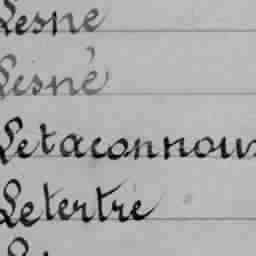 Lesne
Lesné
Letaconnoux
Letertre